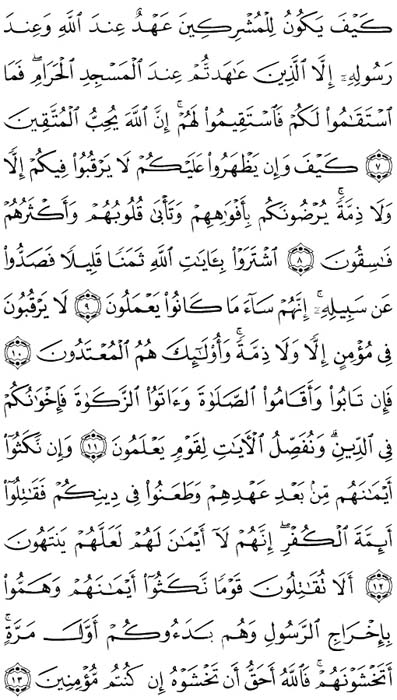 كَيْفَ يَكُونُ لِلْمُشْرِكِينَ عَهْدٌ عِندَ اللَّهِ وَعِندَ
رَسُولِهِۦٓ إِلَّا الَّذِينَ عَٰهَدتُّمْ عِندَ الْمَسْجِدِ الْحَرَامِۖ فَمَا
اسْتَقَٰمُوا۟ لَكُمْ فَاسْتَقِيمُوا۟ لَهُمْۚ إِنَّ اللَّهَ يُحِبُّ الْمُتَّقِينَ
﴿٧﴾ كَيْفَ وَإِن يَظْهَرُوا۟ عَلَيْكُمْ لَا يَرْقُبُوا۟ فِيكُمْ إِلًّا
وَلَا ذِمَّةًۚ يُرْضُونَكُم بِأَفْوَٰهِهِمْ وَتَأْبَىٰ قُلُوبُهُمْ وَأَكْثَرُهُمْ
فَٰسِقُونَ ﴿٨﴾ اشْتَرَوْا۟ بِـَٔايَٰتِ اللَّهِ ثَمَنًا قَلِيلًا فَصَدُّوا۟
عَن سَبِيلِهِۦٓۚ إِنَّهُمْ سَآءَ مَا كَانُوا۟ يَعْمَلُونَ ﴿٩﴾ لَا يَرْقُبُونَ
فِى مُؤْمِنٍ إِلًّا وَلَا ذِمَّةًۚ وَأُو۟لَٰٓئِكَ هُمُ الْمُعْتَدُونَ ﴿١٠﴾
فَإِن تَابُوا۟ وَأَقَامُوا۟ الصَّلَوٰةَ وَءَاتَوُا۟ الزَّكَوٰةَ فَإِخْوَٰنُكُمْ
فِى الدِّينِۗ وَنُفَصِّلُ الْأَيَٰتِ لِقَوْمٍ يَعْلَمُونَ ﴿١١﴾ وَإِن نَّكَثُوٓا۟
أَيْمَٰنَهُم مِّنۢ بَعْدِ عَهْدِهِمْ وَطَعَنُوا۟ فِى دِينِكُمْ فَقَٰتِلُوٓا۟
أَئِمَّةَ الْكُفْرِۙ إِنَّهُمْ لَآ أَيْمَٰنَ لَهُمْ لَعَلَّهُمْ يَنتَهُونَ
﴿١٢﴾ أَلَا تُقَٰتِلُونَ قَوْمًا نَّكَثُوٓا۟ أَيْمَٰنَهُمْ وَهَمُّوا۟
بِإِخْرَاجِ الرَّسُولِ وَهُم بَدَءُوكُمْ أَوَّلَ مَرَّةٍۚ
أَتَخْشَوْنَهُمْۚ فَاللَّهُ أَحَقُّ أَن تَخْشَوْهُ إِن كُنتُم مُّؤْمِنِينَ ﴿١٣﴾